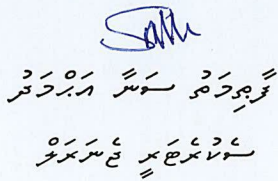 ފާޠިމަތު ސަނާ އަޙްމަދު
ސެކުރެޓަރީ ޖެނަރަލް